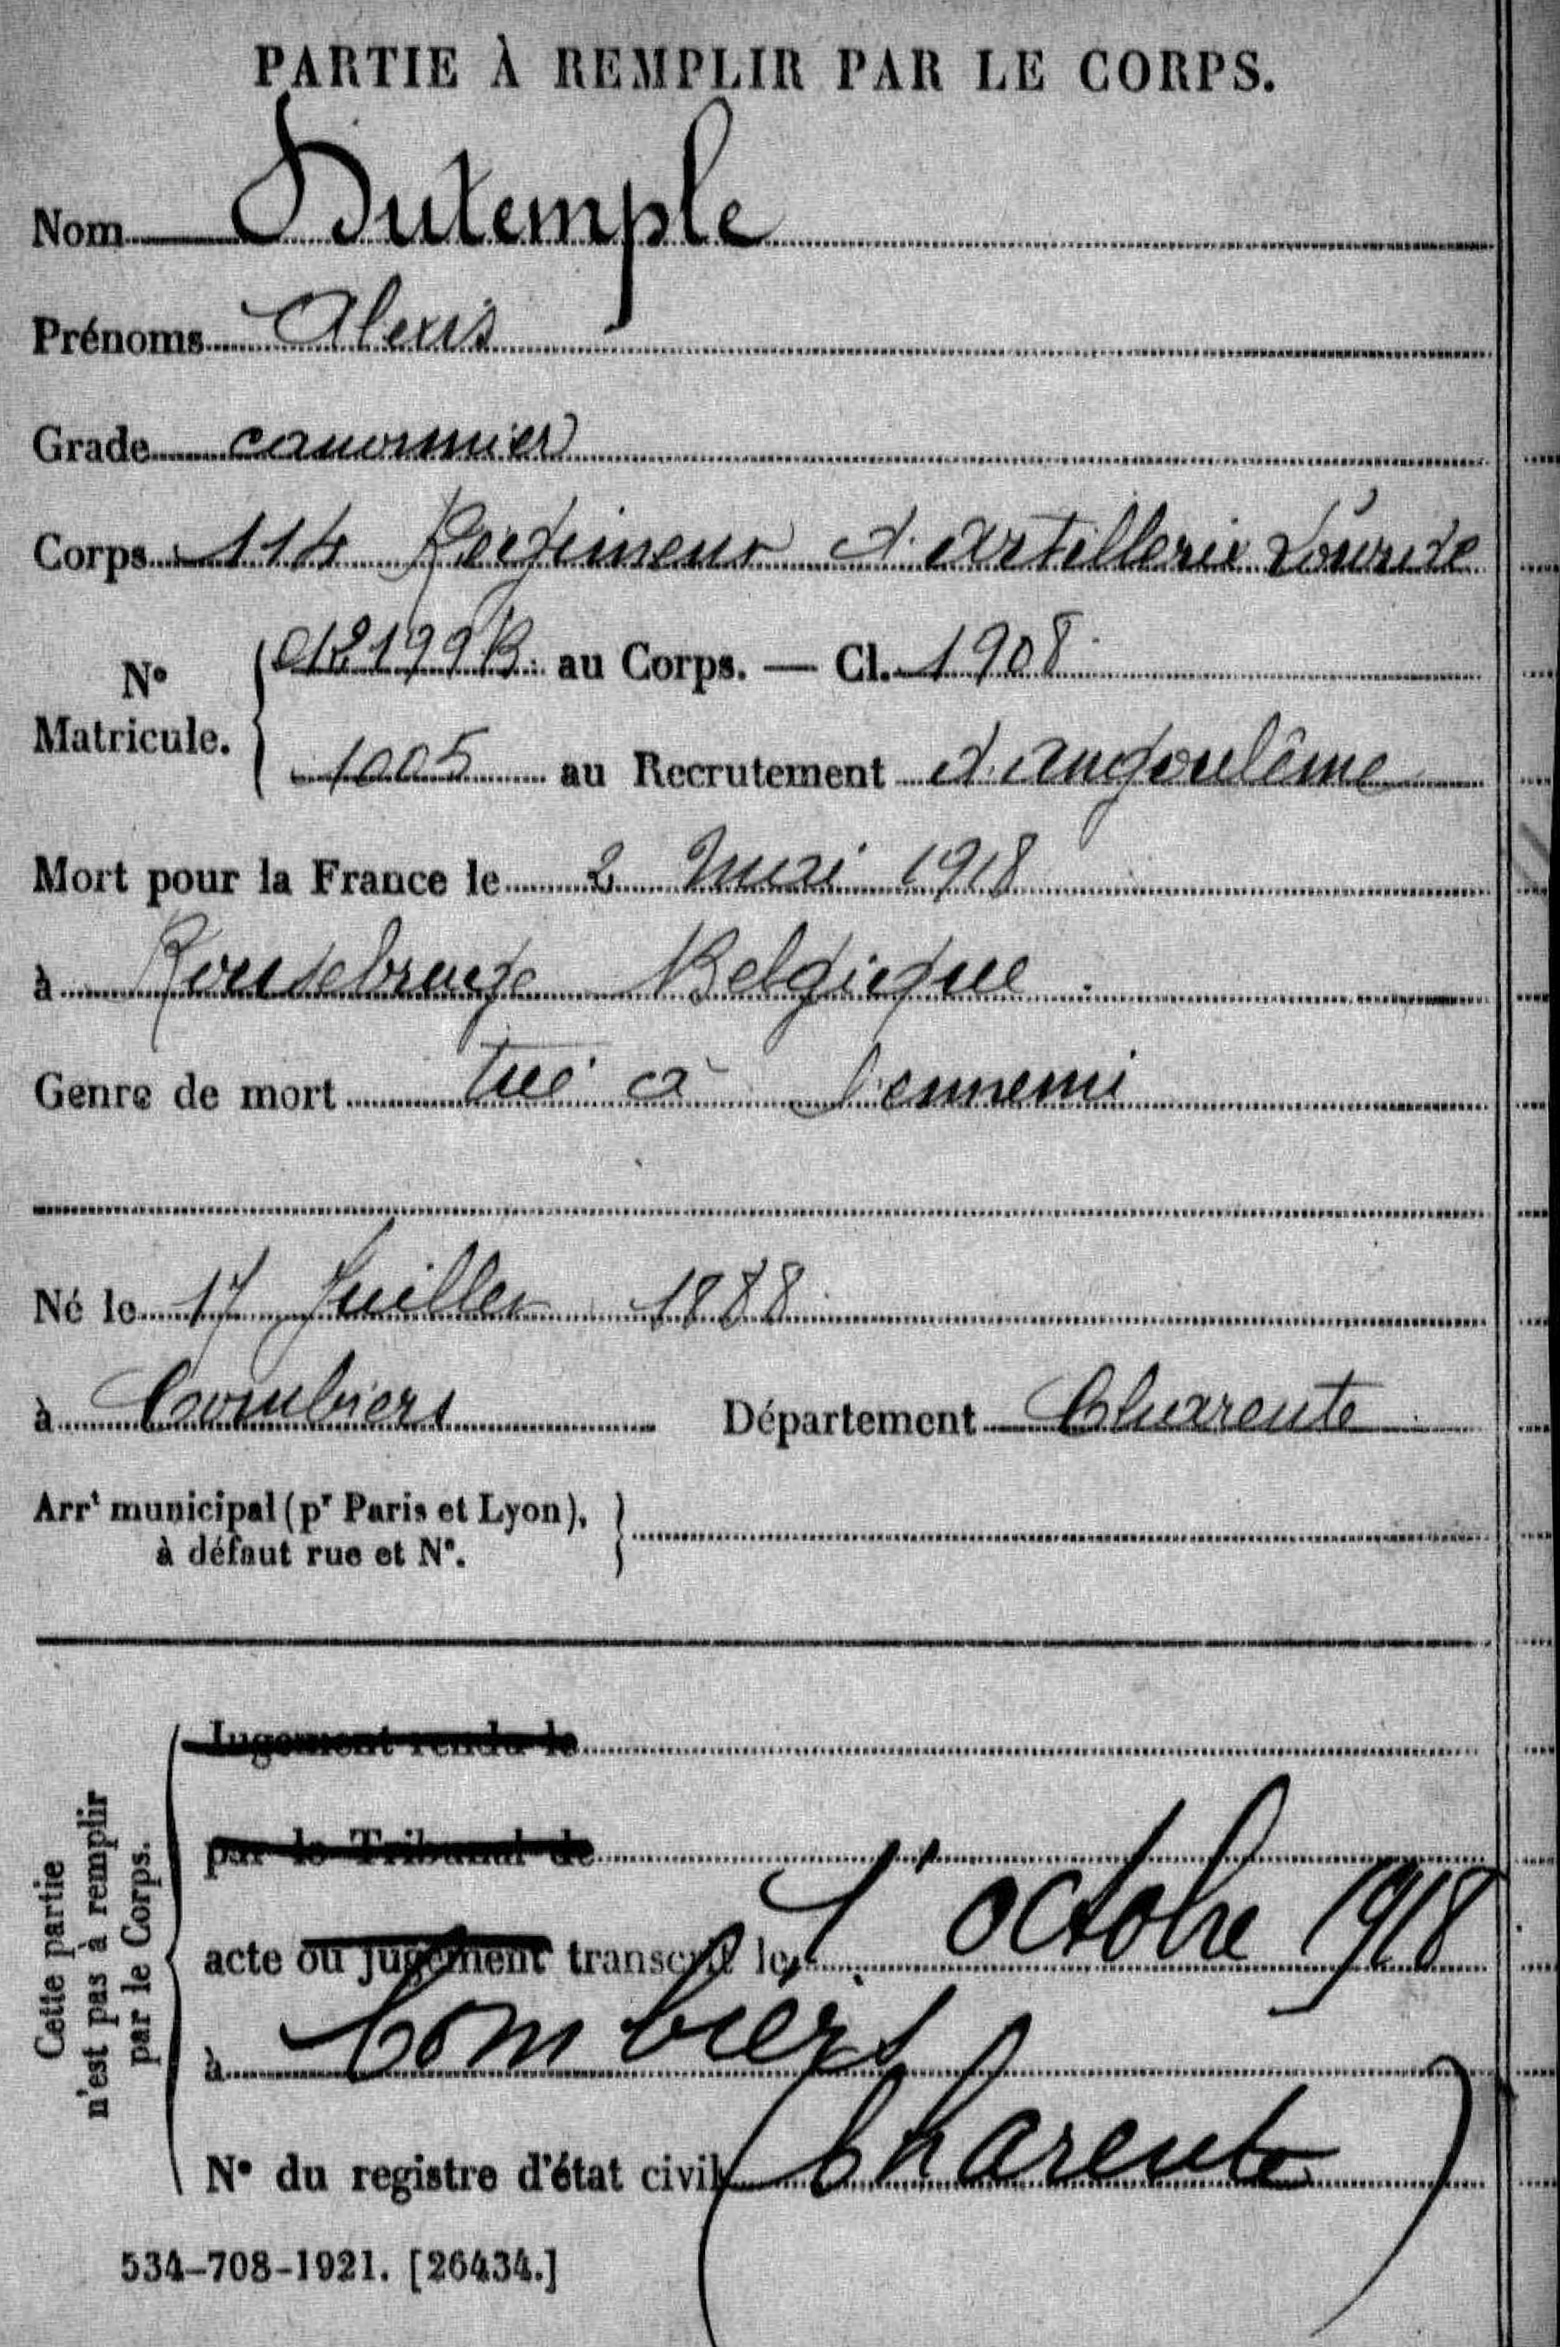 PARTIE À REMPLIR PAR LE CORPS.
Nom Dutemple
Prénoms Alexis
Grade canonnier
Corps 114 Regiment d'Artillerie Lourde
N° Matricule. 012199B au Corps. — Cl. 1908
1005 au Recrutement d'Angoulême
Mort pour la France le 2 Mai 1918
à Rousebruge Belgique
Genre de mort tué à l'ennemi
Né le 17 Juillet 1888
à Combiers Département Charente
Arrt municipal (pr Paris et Lyon),
à défaut rue et N°.
Cette partie
n'est pas à remplir
par le Corps.
Jugement rendu le
par le Tribunal de
acte ou jugement transcrit le 1r octobre 1918
à Combiers
N° du registre d'état civil (Charente)
534-708-1921. [26434.]